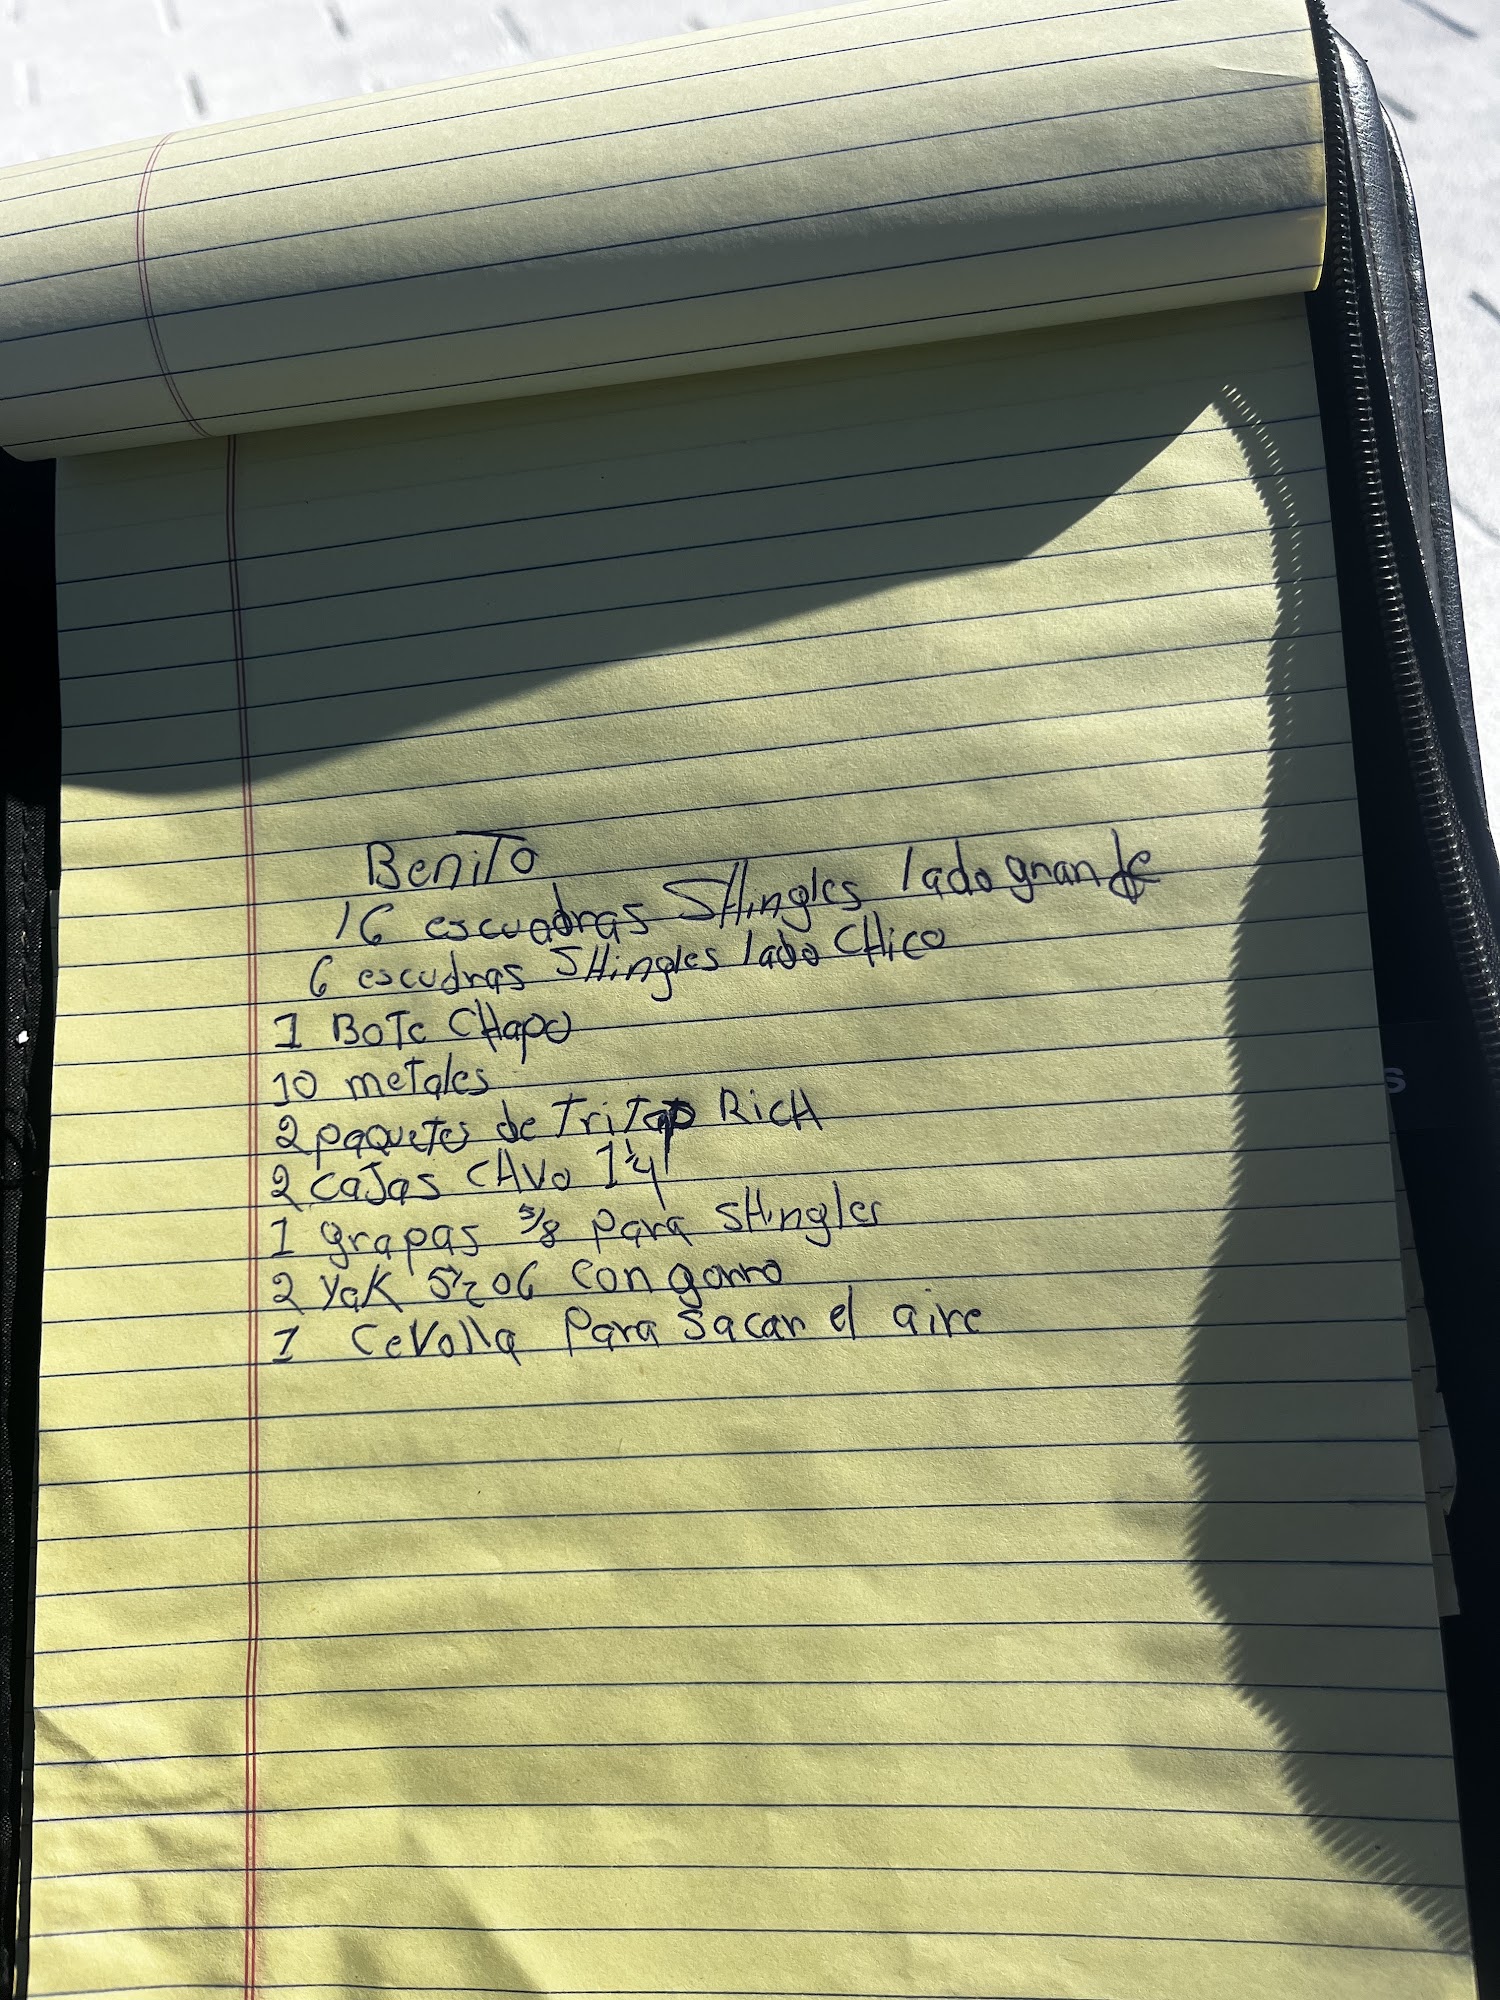 Benito
16 escuadras SHingles lado grande
6 escudras SHingles lado CHico
1 BoTe CHapo
10 meTales
2 paqueTes de TriTap RicH
2 caJas CAVo 1 1/4
1 grapas 5/8 para sHingles
2 YaK 5 1/2 06 con gorro
1 CeVolla Para Sacar el aire
s